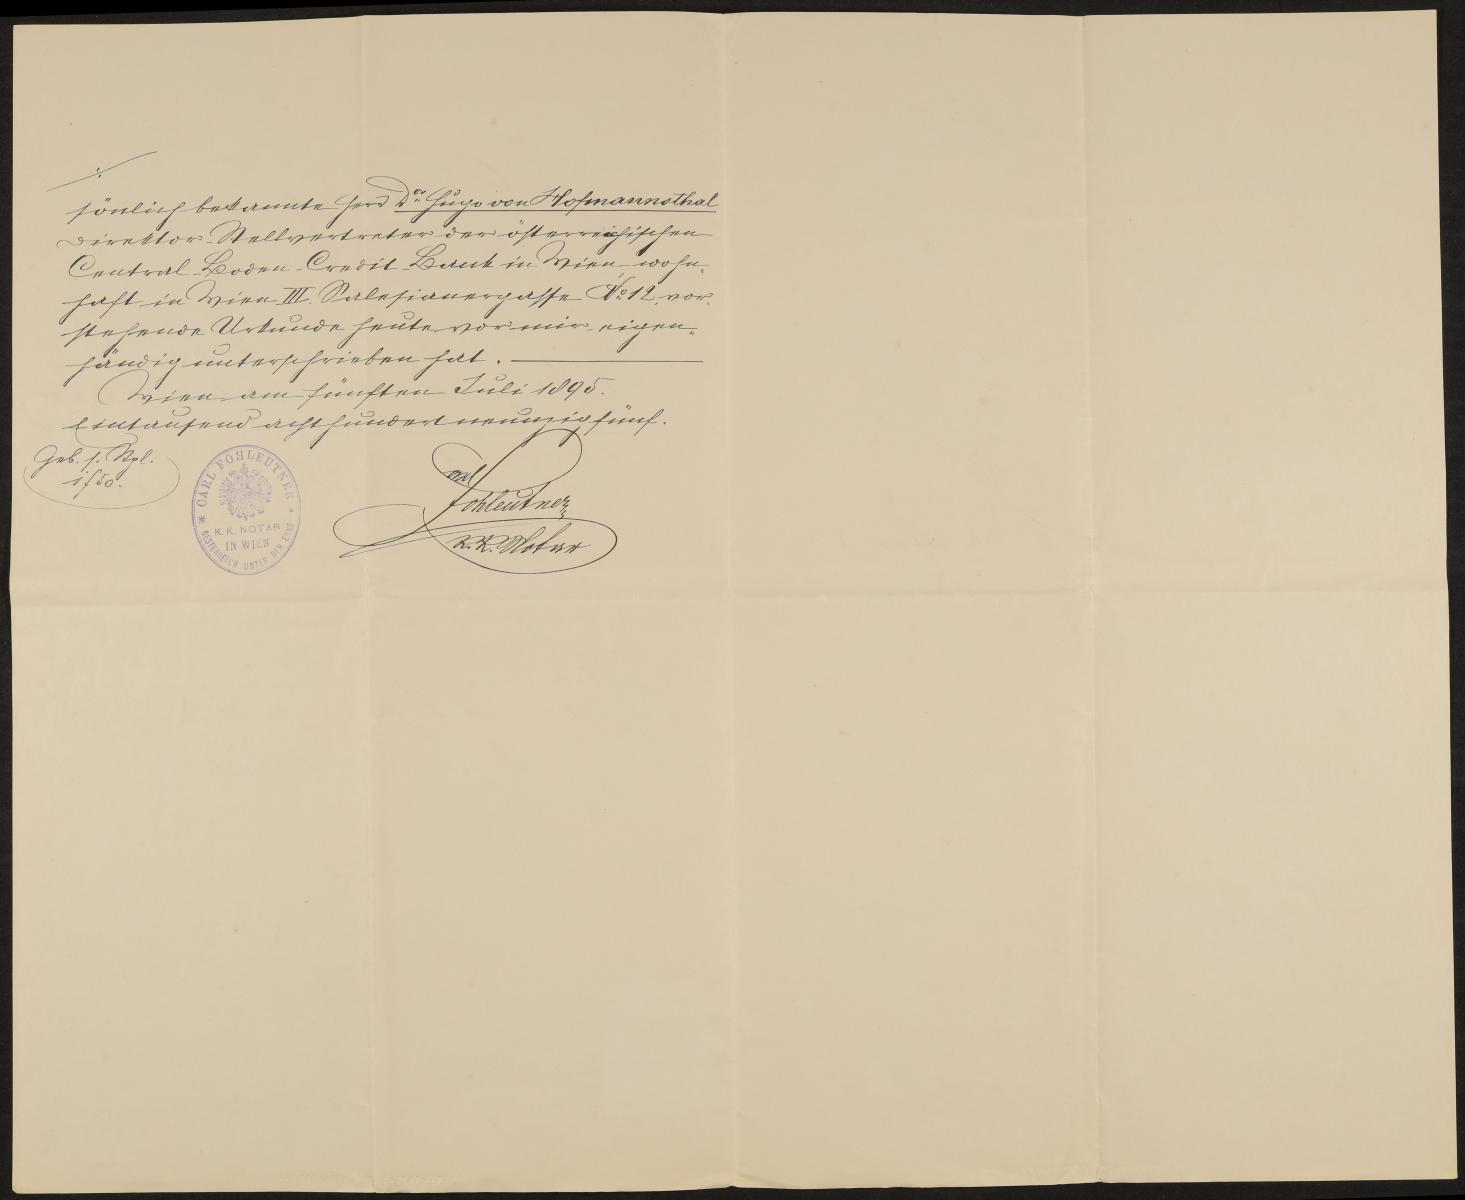 ./.
sönlich bekannte Herr Dor Hugo von Hofmannsthal
Direktor-Stellvertreter der österreichischen
Central-Boden-Credit-Bank in Wien, wohn-
haft in Wien III. Salesianergasse No 12, vor-
stehende Urkunde heute vor mir eigen-
händig unterschrieben hat.
Wien am fünften Juli 1895.
Eintausend achthundert neunzigfünf.
Geb. s. Stpl.
1f50.
CARL FOHLEUTNER
K.K. NOTAR
IN WIEN
OESTERREICH UNTER DER ENNS
Carl
Fohleutner
k.k. Notar